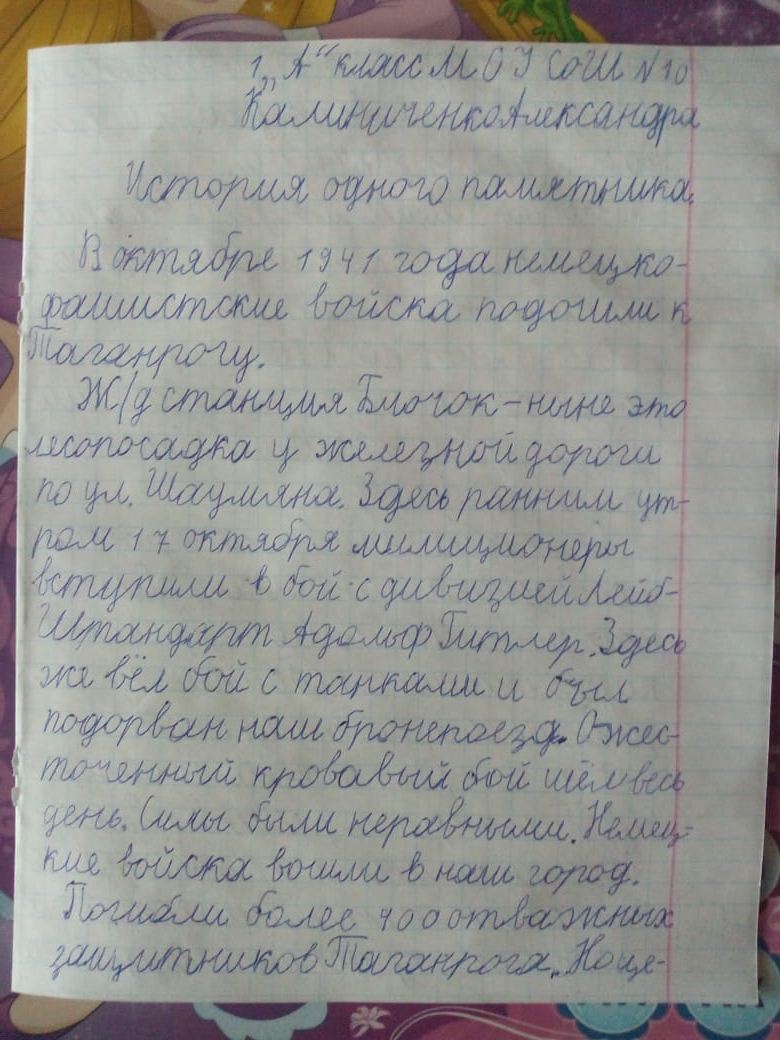 1 „А" класс МОУ СОШ №10
Калиниченко Александра
История одного памятника.
В октябре 1941 года немецко-
фашистские войска подошли к
Таганрогу.
Ж/д станция Блочок – ныне это
лесопосадка у железной дороги
по ул. Шаумяна. Здесь ранним ут-
ром 17 октября милиционеры
вступили в бой с дивизией Лейб-
Штандарт Адольф Гитлер. Здесь
же вёл бой с танками и был
подорван наш бронепоезд. Ожес-
точенный кровавый бой шёл весь
день. Силы были неравными. Немец-
кие войска вошли в наш город.
Погибли более 400 отважных
защитников Таганрога.